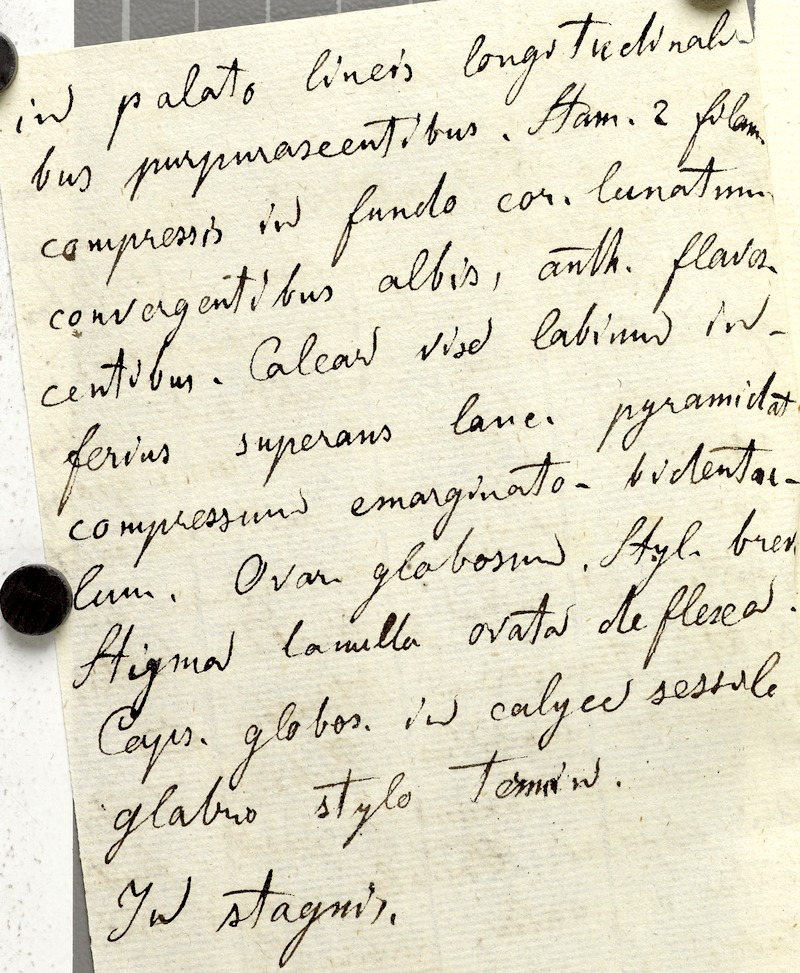 in palato lineis longitudinali
bus purpurascentibus. Stam. 2 filam.
compressis in fundo cor. lunatim
convergentibus albis, anth. flaves
centibus. Calcar vise labium in-
ferius superans lanc. pyramidat
compressum emarginato- bidentu-
lum. Ovar. globosum. Styl. brev
Stigma lamella ovata deflexa.
Caps. globos. in calyce sessile
glabro stylo termin.
In stagnis.